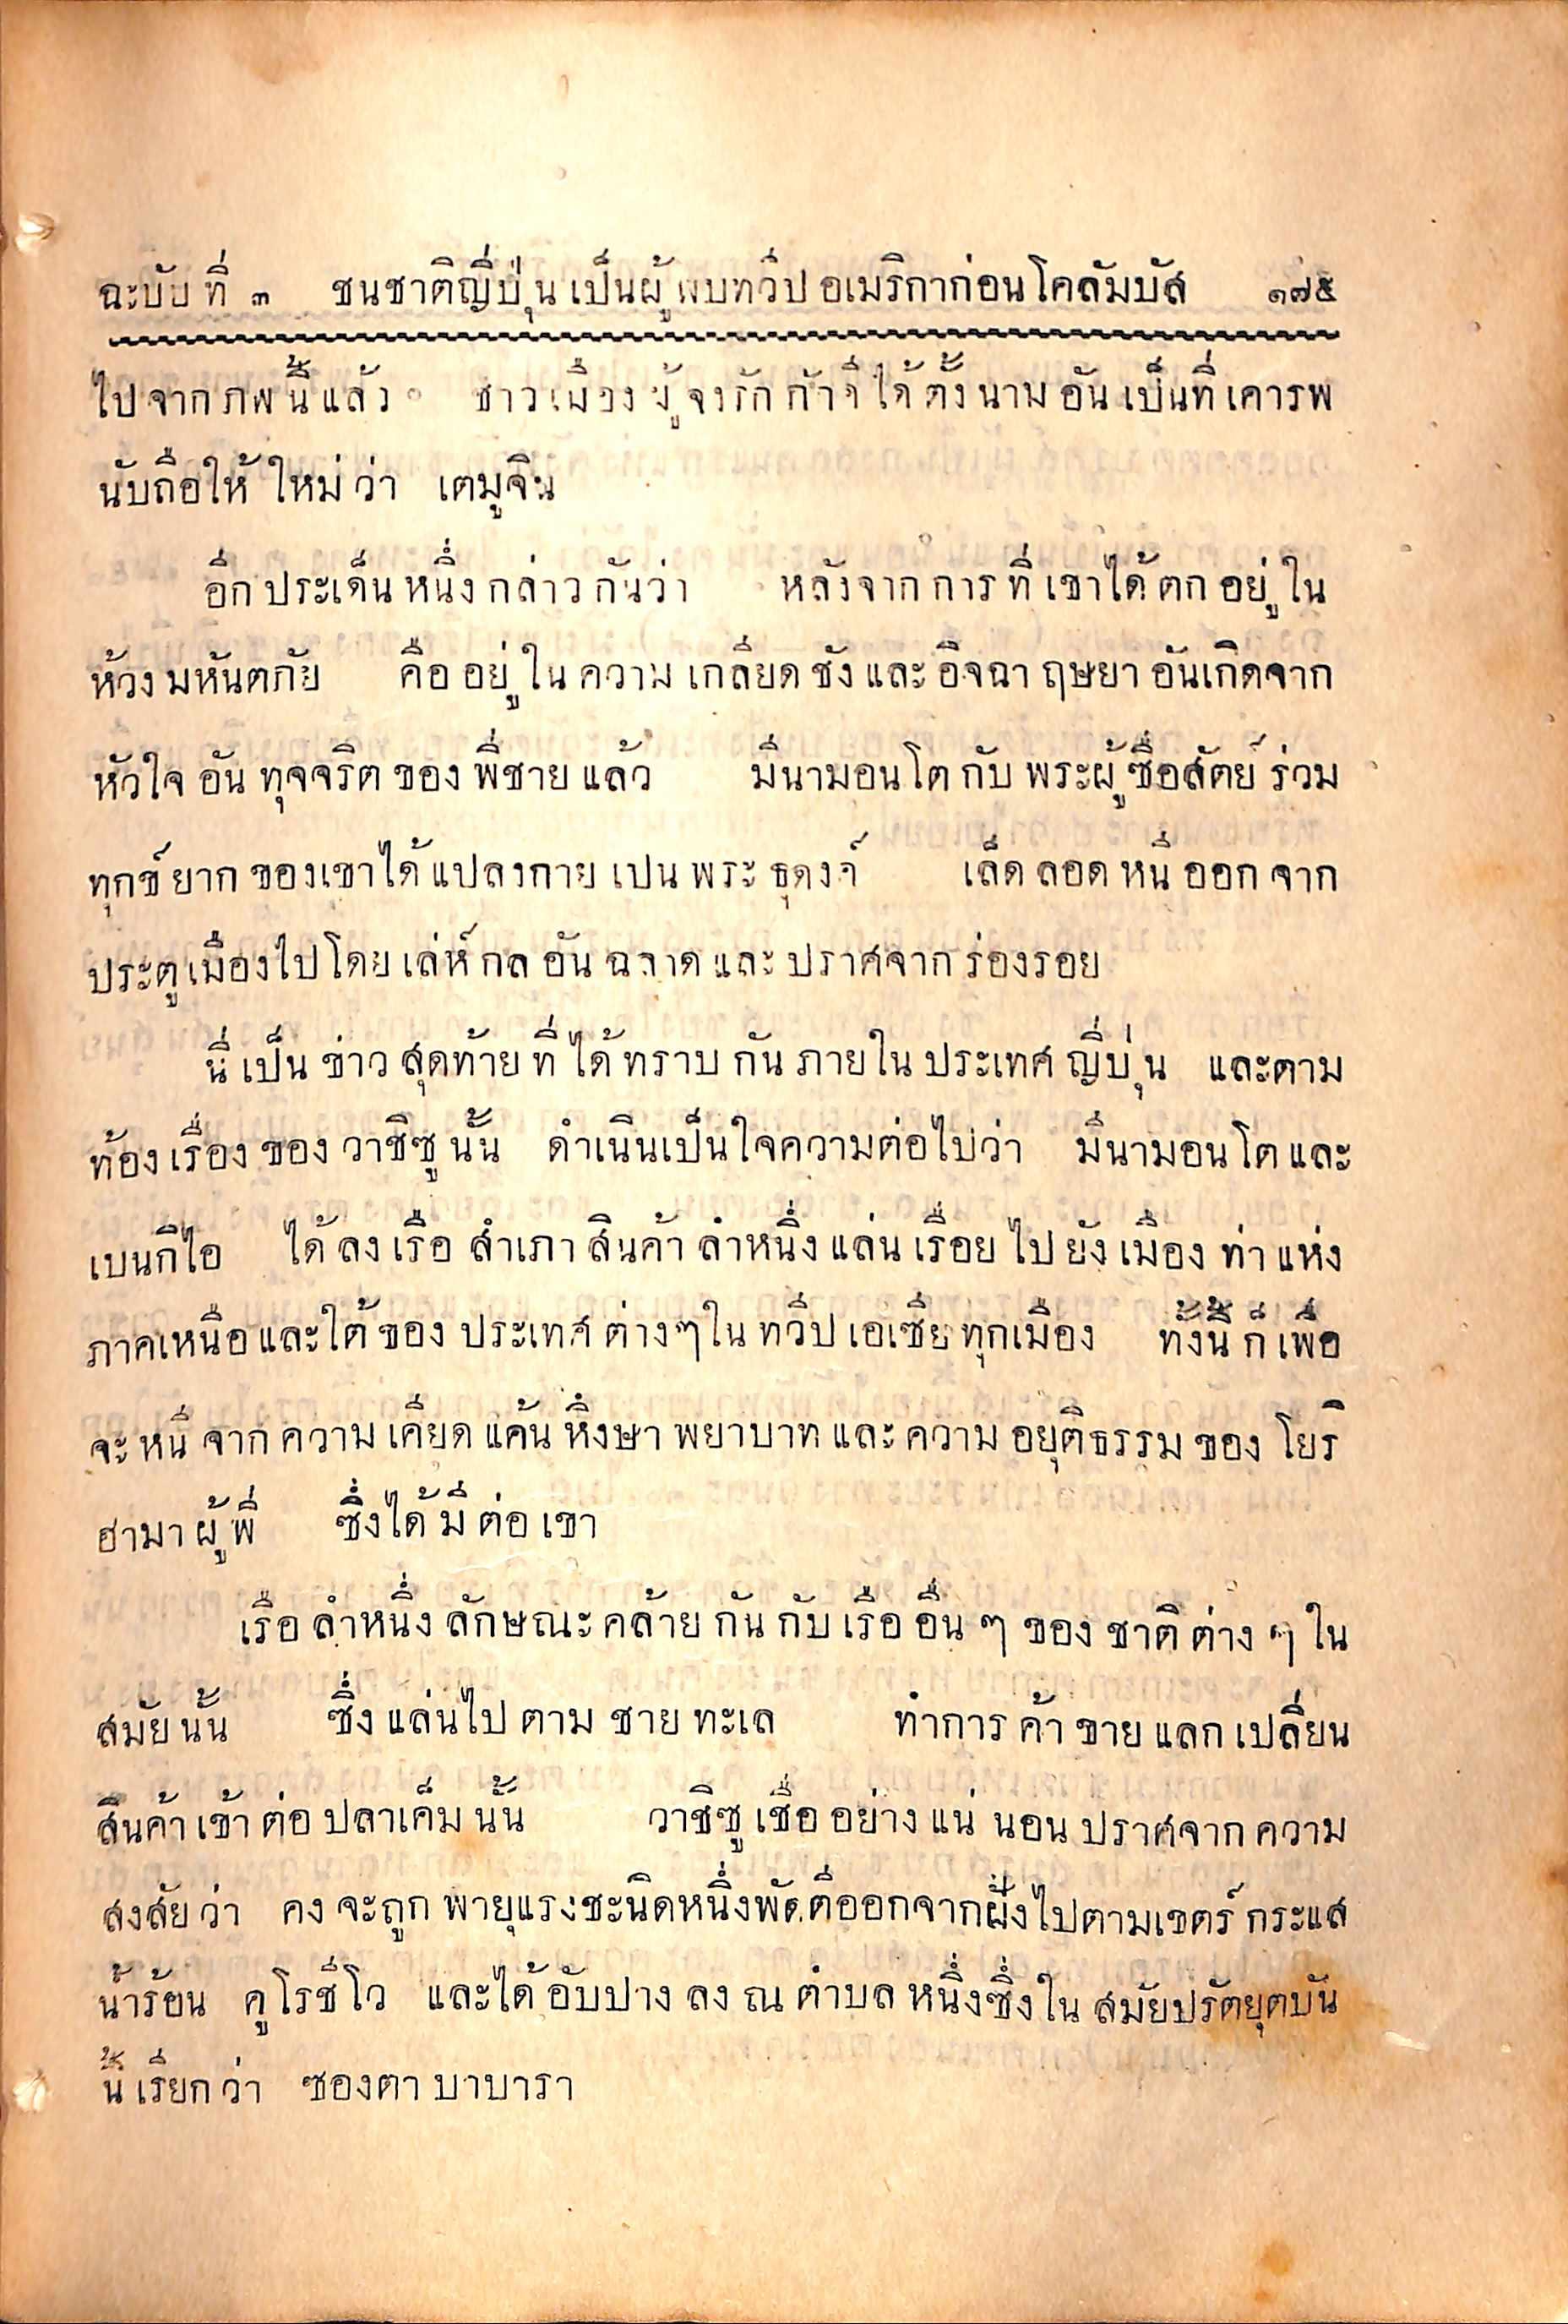 ฉะบับที่ ๓ ชนชาติญี่ปุ่นเป็นผู้พบทวีปอเมริกาก่อนโคลัมบัส ๑๗๕
ไปจากภพนี้แล้ว ชาวเมืองผู้จงรักก็ได้ตั้งนามอันเป็นที่เคารพ
นับถือให้ใหม่ว่า เตมูจิน
อีกประเด็นหนึ่งกล่าวกันว่า หลังจากการที่เขาได้ตกอยู่ใน
ห้วงมหันตภัย คืออยู่ในความเกลียดชังและอิจฉาฤษยาอันเกิดจาก
หัวใจอันทุจจริตของพี่ชายแล้ว มินามอนโตกับพระผู้ซื่อสัตย์ร่วม
ทุกข์ยากของเขาได้แปลงกายเปนพระธุดงค์ เล็ดลอดหนีออกจาก
ประตูเมืองไปโดยเล่ห์กลอันฉลาดและปราศจากร่องรอย
นี่เป็นข่าวสุดท้ายที่ได้ทราบกันภายในประเทศญี่ปุ่น และตาม
ท้องเรื่องของวาชิซูนั้น ดำเนินเป็นใจความต่อไปว่า มินามอนโตและ
เบนกีไอ ได้ลงเรือสำเภาสินค้าลำหนึ่งแล่นเรื่อยไปยังเมืองท่าแห่ง
ภาคเหนือและใต้ของประเทศต่างๆในทวีปเอเซียทุกเมือง ทั้งนี้ก็เพื่อ
จะหนีจากความเคียดแค้นหึงษาพยาบาทและความอยุติธรรมของโยริ
ฮามาผู้พี่ ซึ่งได้มีต่อเขา
เรือลำหนึ่งลักษณะคล้ายกันกับเรืออื่นๆของชาติต่างๆใน
สมัยนั้น ซึ่งแล่นไปตามชายทะเล ทำการค้าขายแลกเปลี่ยน
สินค้าเข้าต่อปลาเค็มนั้น วาชิซูเชื่ออย่างแน่นอนปราศจากความ
สงสัยว่า คงจะถูกพายุแรงชะนิดหนึ่งพัดตีออกจากฝั่งไปตามเขตร์กระแส
น้ำร้อน คูโรชีโว และได้อับปางลงณตำบลหนึ่งซึ่งในสมัยปรัตยุตบัน
นี้เรียกว่า ซองตาบาบารา